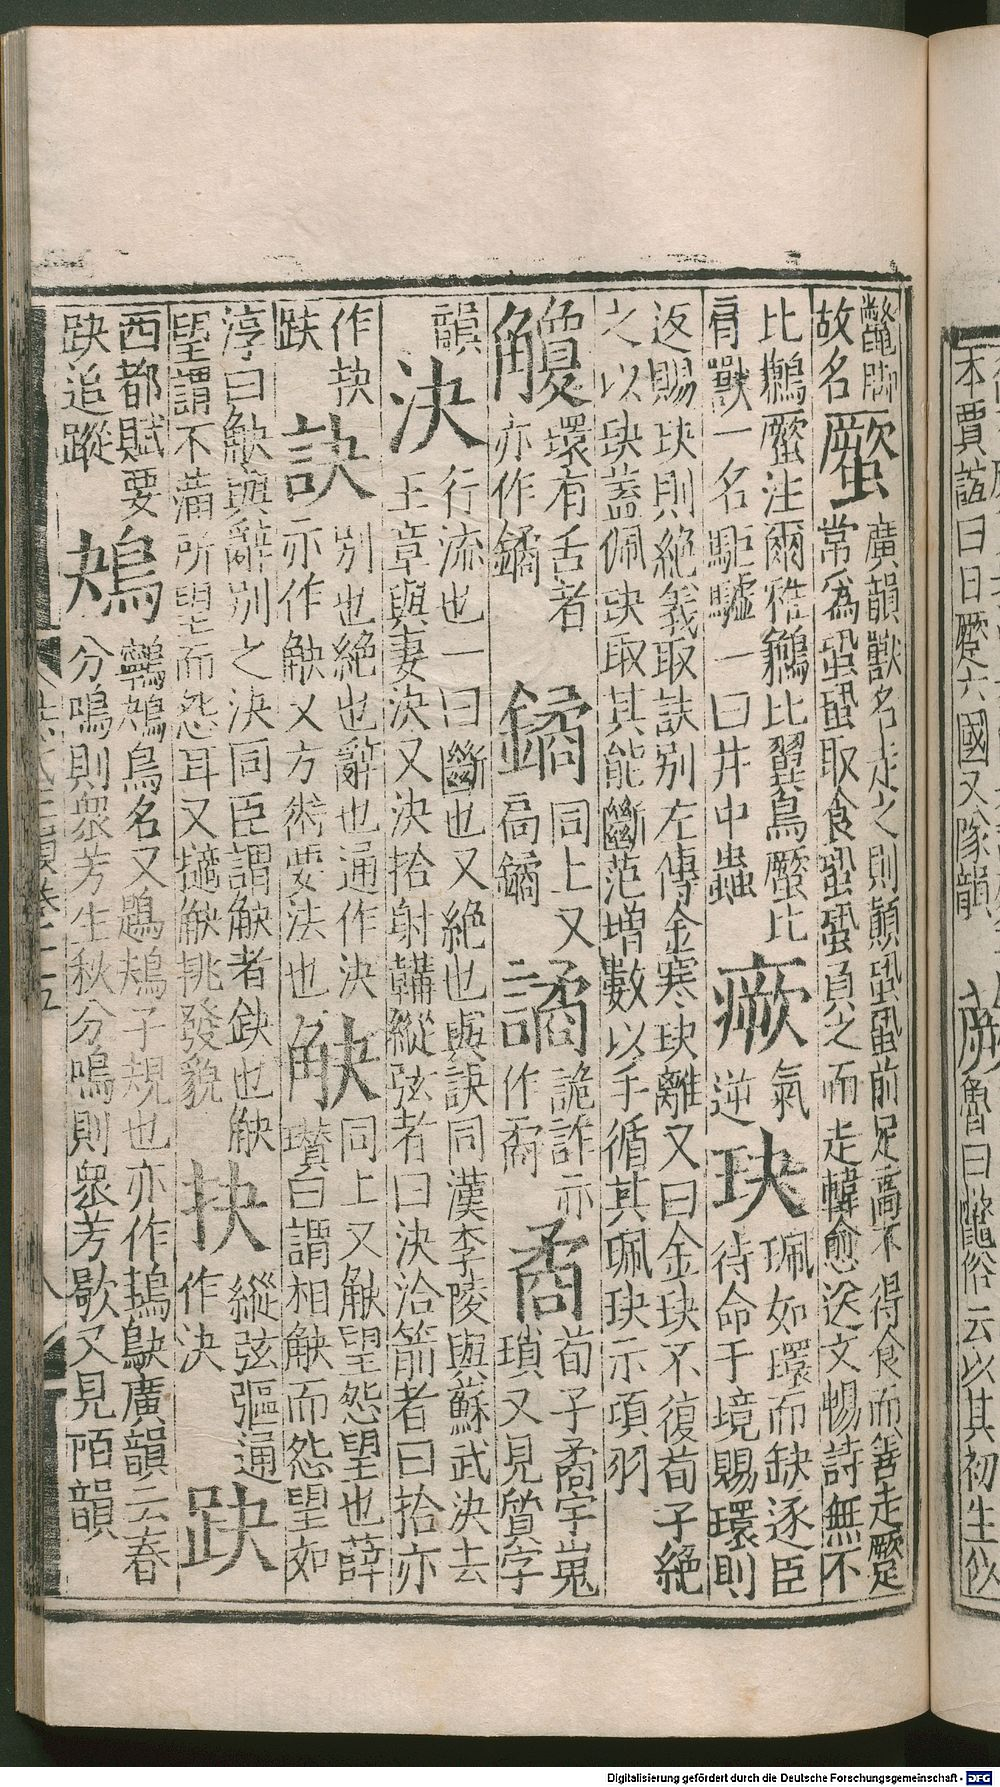 鼈脚
故名
蟨
廣韻獸名走之則顛蛩蛩前足高不得食而善走蹷
常爲蛩蛩取食蛩蛩負之而走韓愈送文暢詩無不
比鶼蟨注爾雅鶼比翼鳥蟨比
肩獸一名駏驉一曰井中蟲
瘚
氣
逆
玦
珮如環而缺逐臣
待命于境賜環則
返賜玦則絶義取訣别左傳金寒玦離又曰金玦不復荀子絶
之以玦蓋佩玦取其能斷范增數以手循其珮玦示項羽
觼
環有舌者
亦作鐍
鐍
同上又
扃鐍
譎
詭詐亦
作矞
矞
荀子矞宇嵬
瑣又見質字
韻
決
行流也一曰斷也又絶也與訣同漢李陵與蘇武決去
王章與妻決又決拾射韝縱弦者曰決洽箭者曰拾亦
作抉
䟦
訣
别也絶也辭也通作決
亦作觖又方術要法也
觖
同上又觖望怨望也薛
瓚曰謂相觖而怨望如
淳曰觖與辭别之決同臣謂觖者缺也觖
望謂不滿所望而怨耳又擿觖挑發貌
抉
縱弦彄通
作決
趹
西都賦要
趹追蹤
鴂
鷤鴂鳥名又鶗鴂子規也亦作鴂鴃廣韻云春
分鳴則衆芳生秋分鳴則衆芳歇又見陌韻
本賈誼曰日蹷六國又隊韻
魯曰鼈俗云以其初生似
Digitalisierung gefördert durch die Deutsche Forschungsgemeinschaft - DFG